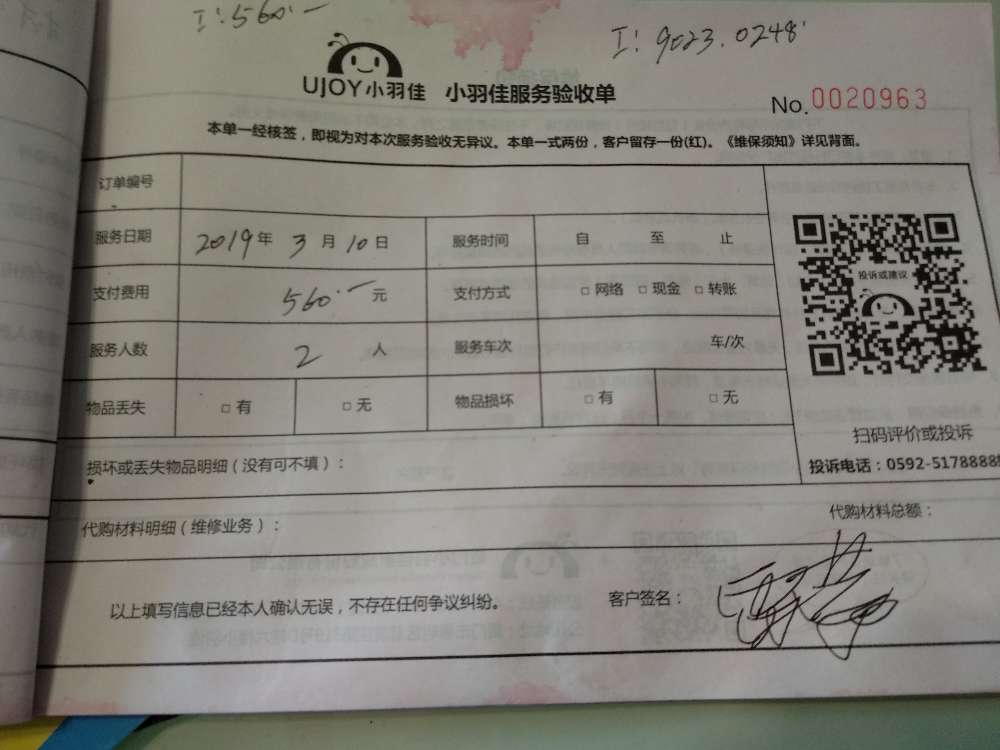 I: 560.—
I: 9023.0248
UJOY小羽佳 小羽佳服务验收单
No. 0020963
本单一经核签，即视为对本次服务验收无异议。本单一式两份，客户留存一份(红)。《维保须知》详见背面。
订单编号
服务日期 2019年 3月 10日 服务时间 自 至 止
支付费用 560.— 元 支付方式 □ 网络 □ 现金 □ 转账
投诉或建议
服务人数 2 人 服务车次 车/次
物品丢失 □ 有 □ 无 物品损坏 □ 有 □ 无
扫码评价或投诉
损坏或丢失物品明细（没有可不填）：
投诉电话：0592-5178888
代购材料明细（维修业务）：
代购材料总额：
以上填写信息已经本人确认无误，不存在任何争议纠纷。
客户签名：